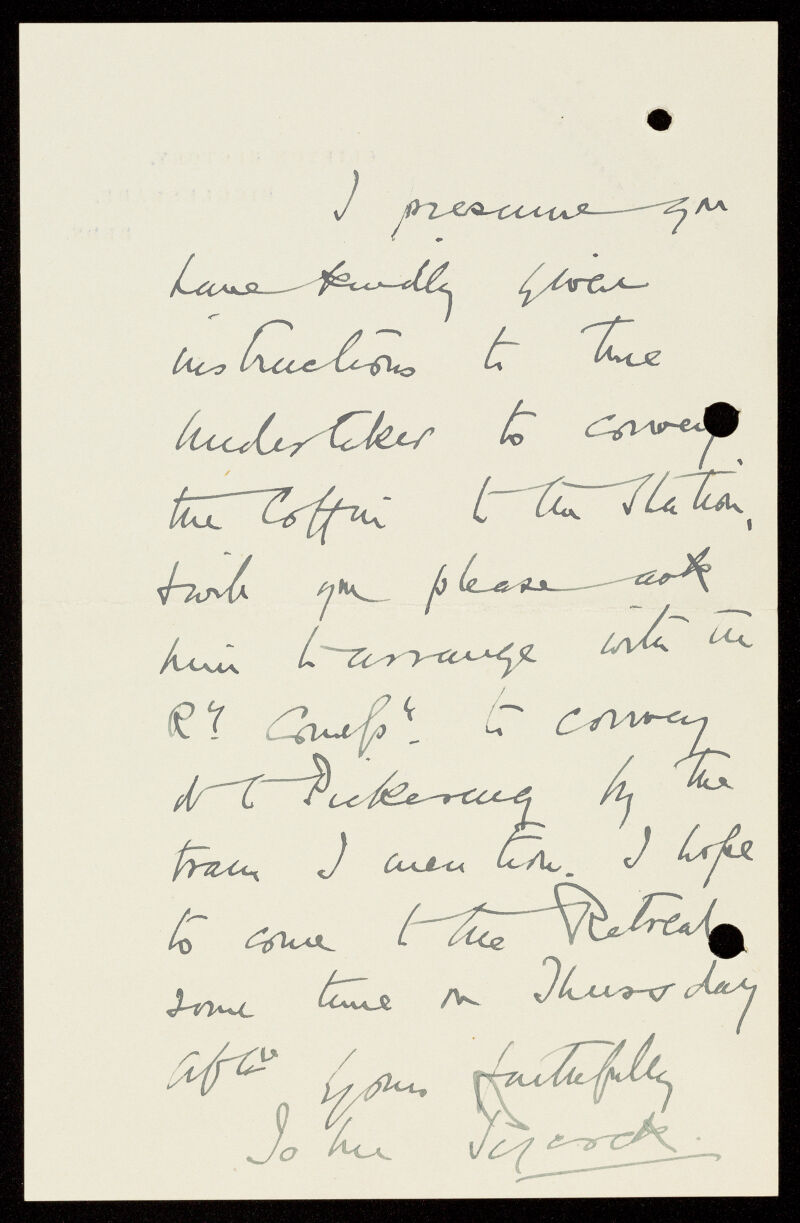 I presume you
have kindly given
instructions to the
Undertaker to convey
the Coffin to the Station,
& will you please ask
him to arrange with the
Ry. Compy. to convey
it to Pickering by the
train I mention. I hope
to come to the Retreat
some time on Thursday
Yours faithfully
John